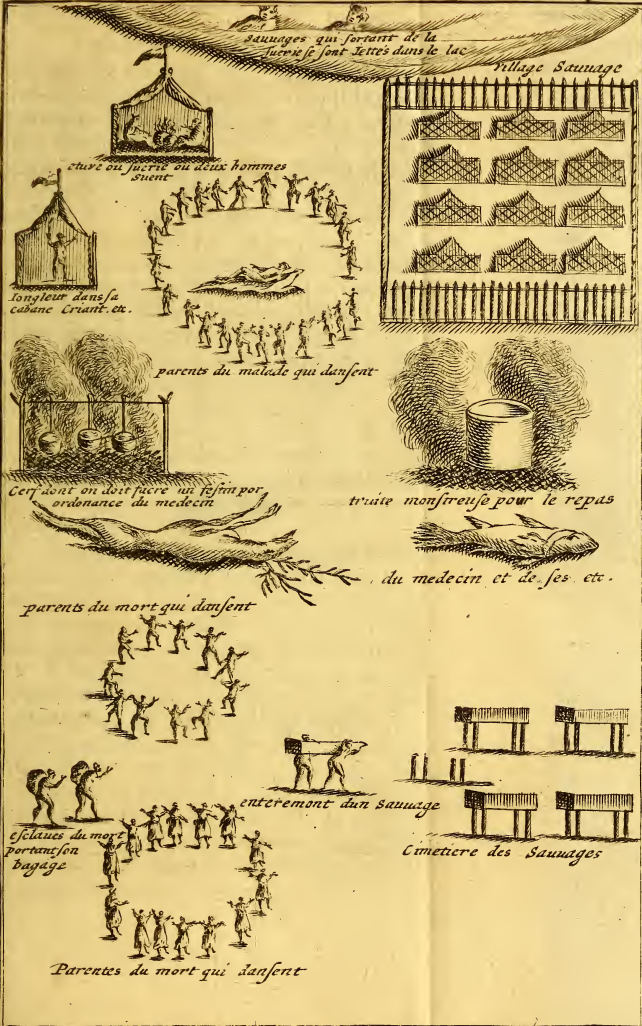 Sauvages qui sortant de la
suerie se sont Iettés dans le lac
Village Sauvage
etuve ou suerie ou deux hommes
suent
Iongleur dans sa
cabane Criant. etc.
parents du malade qui dansent
Cerf dont on doit facre un festin por
ordonance du medecin
truite monstreuse pour le repas
du medecin et de ses etc.
parents du mort qui dansent
enteremont dun Sauvage
esclaves du mort
portant son
bagage
Cimetiere des Sauvages
Parentes du mort qui dansent